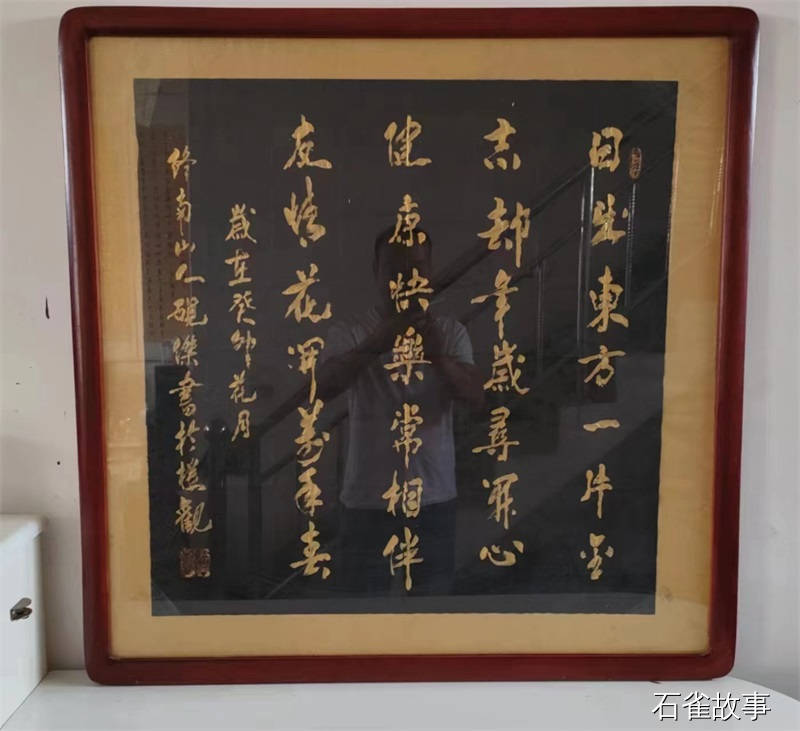 日出東方一片金
忘却年歲尋開心
健康快樂常相伴
友情花開萬年春
歲在癸卯花月
終南山人硯傑書於樓觀
石雀故事